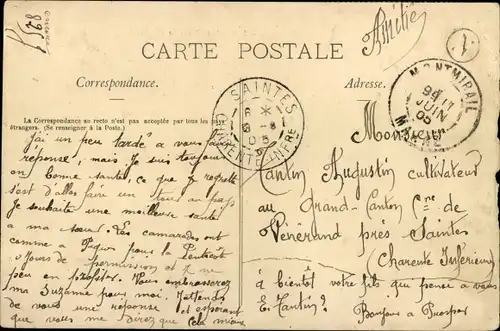 Amitiés
CARTE POSTALE
Correspondance.
Adresse.
La Correspondance au recto n'est pas acceptée par tous les pays
étrangers. (Se renseigner à la Poste.)
SAINTES
CHARENTE-INFRE
MONTMIRAIL
JUIN
05
MARNE
J'ai un peu tardé a vous faire
réponse, mais je suis toujours
en bonne santé, ce que je regrette
c'est d'aller faire un tour au pays
Je souhaite une meilleure santé
a ma sœur. Les camarades ont
comme a Pâques pour la Pentecôte
jours de permission et je ne
peu en profiter. Vous embrasserez
ma Suzanne pour moi. J'attends
de vous une réponse et espérant
que vous me direz que cela mieux
Monsieur
Tantin Augustin cultivateur
au Grand-Canton Cne de
Vénérand près Saintes
(Charente Inférieure)
à bientôt votre fils qui pense a vous
E. Tantin
Bonjour a Prosper